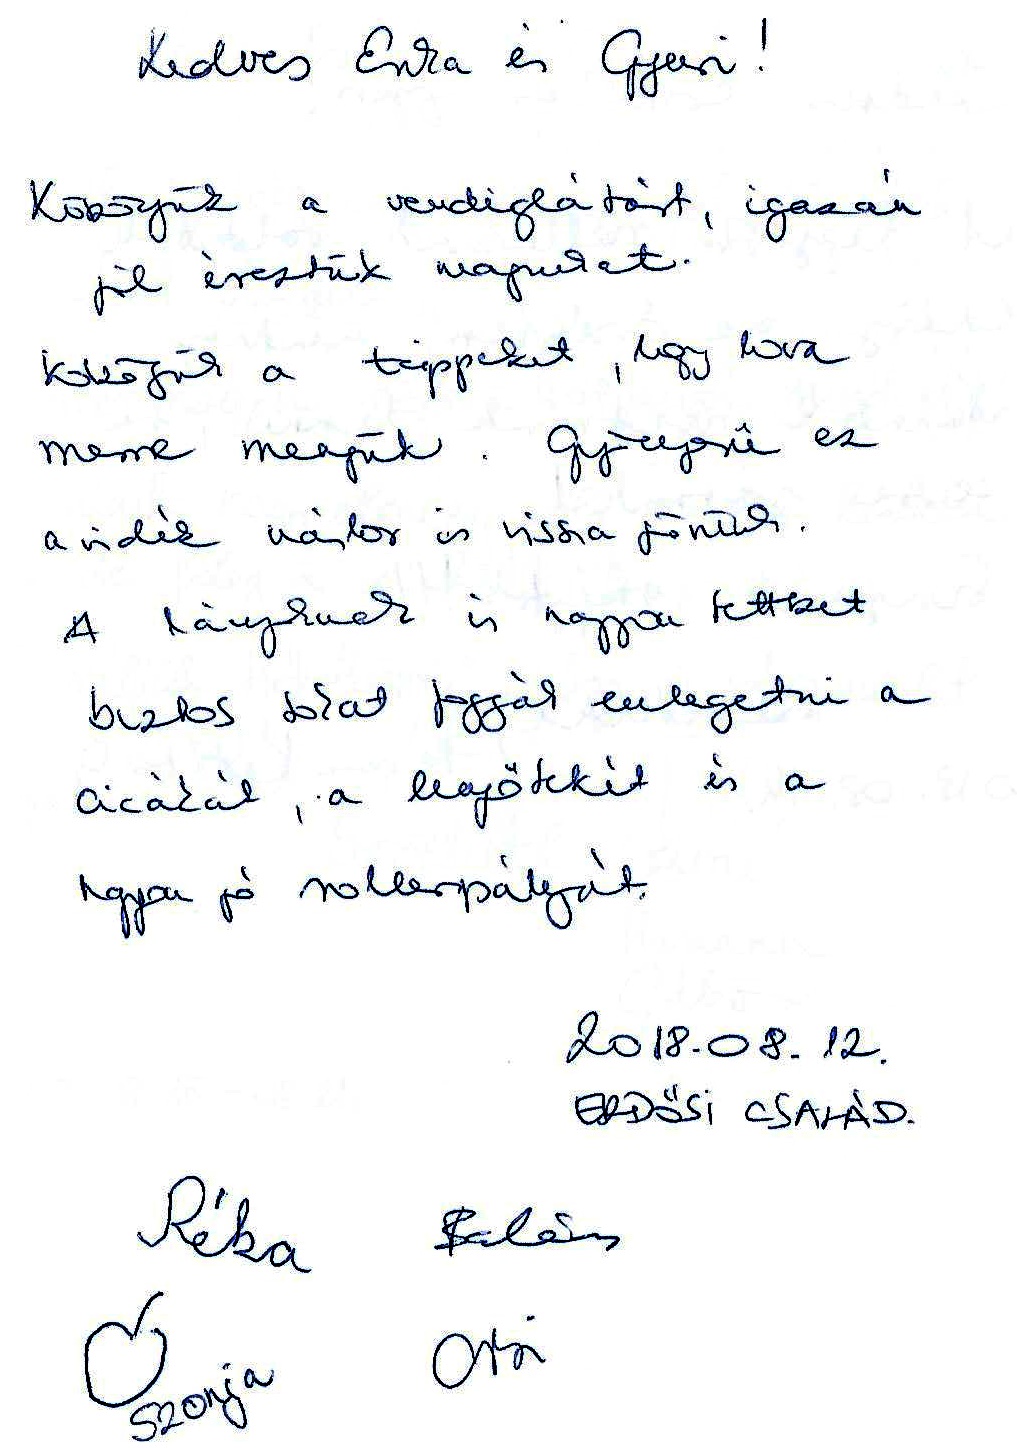 Kedves Enra és Gyuri!
Köszönjük a vendéglátást, igazán
jól éreztük magunkat.
Köszönjük a tippeket, hogy hova
merre menjünk. Gyönyörű ez
a vidék máskor is vissza jövünk.
A lányoknak is nagyon tetszett
biztos sokat fogják emlegetni a
cicákat, a és a
nagyon jó rollerpályát.
2018.08.12.
ERDŐSI CSALÁD.
Réka Balázs
Szonja Orsi